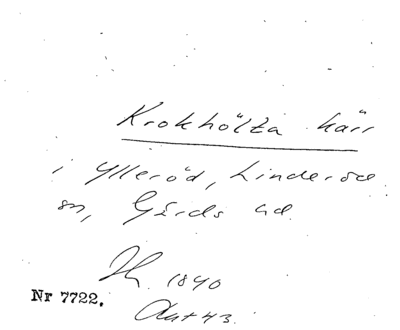 Krokhölta kärr
i Ylleröd, Linderöd
sn, Gärds hd.
1840
Nr 7722.